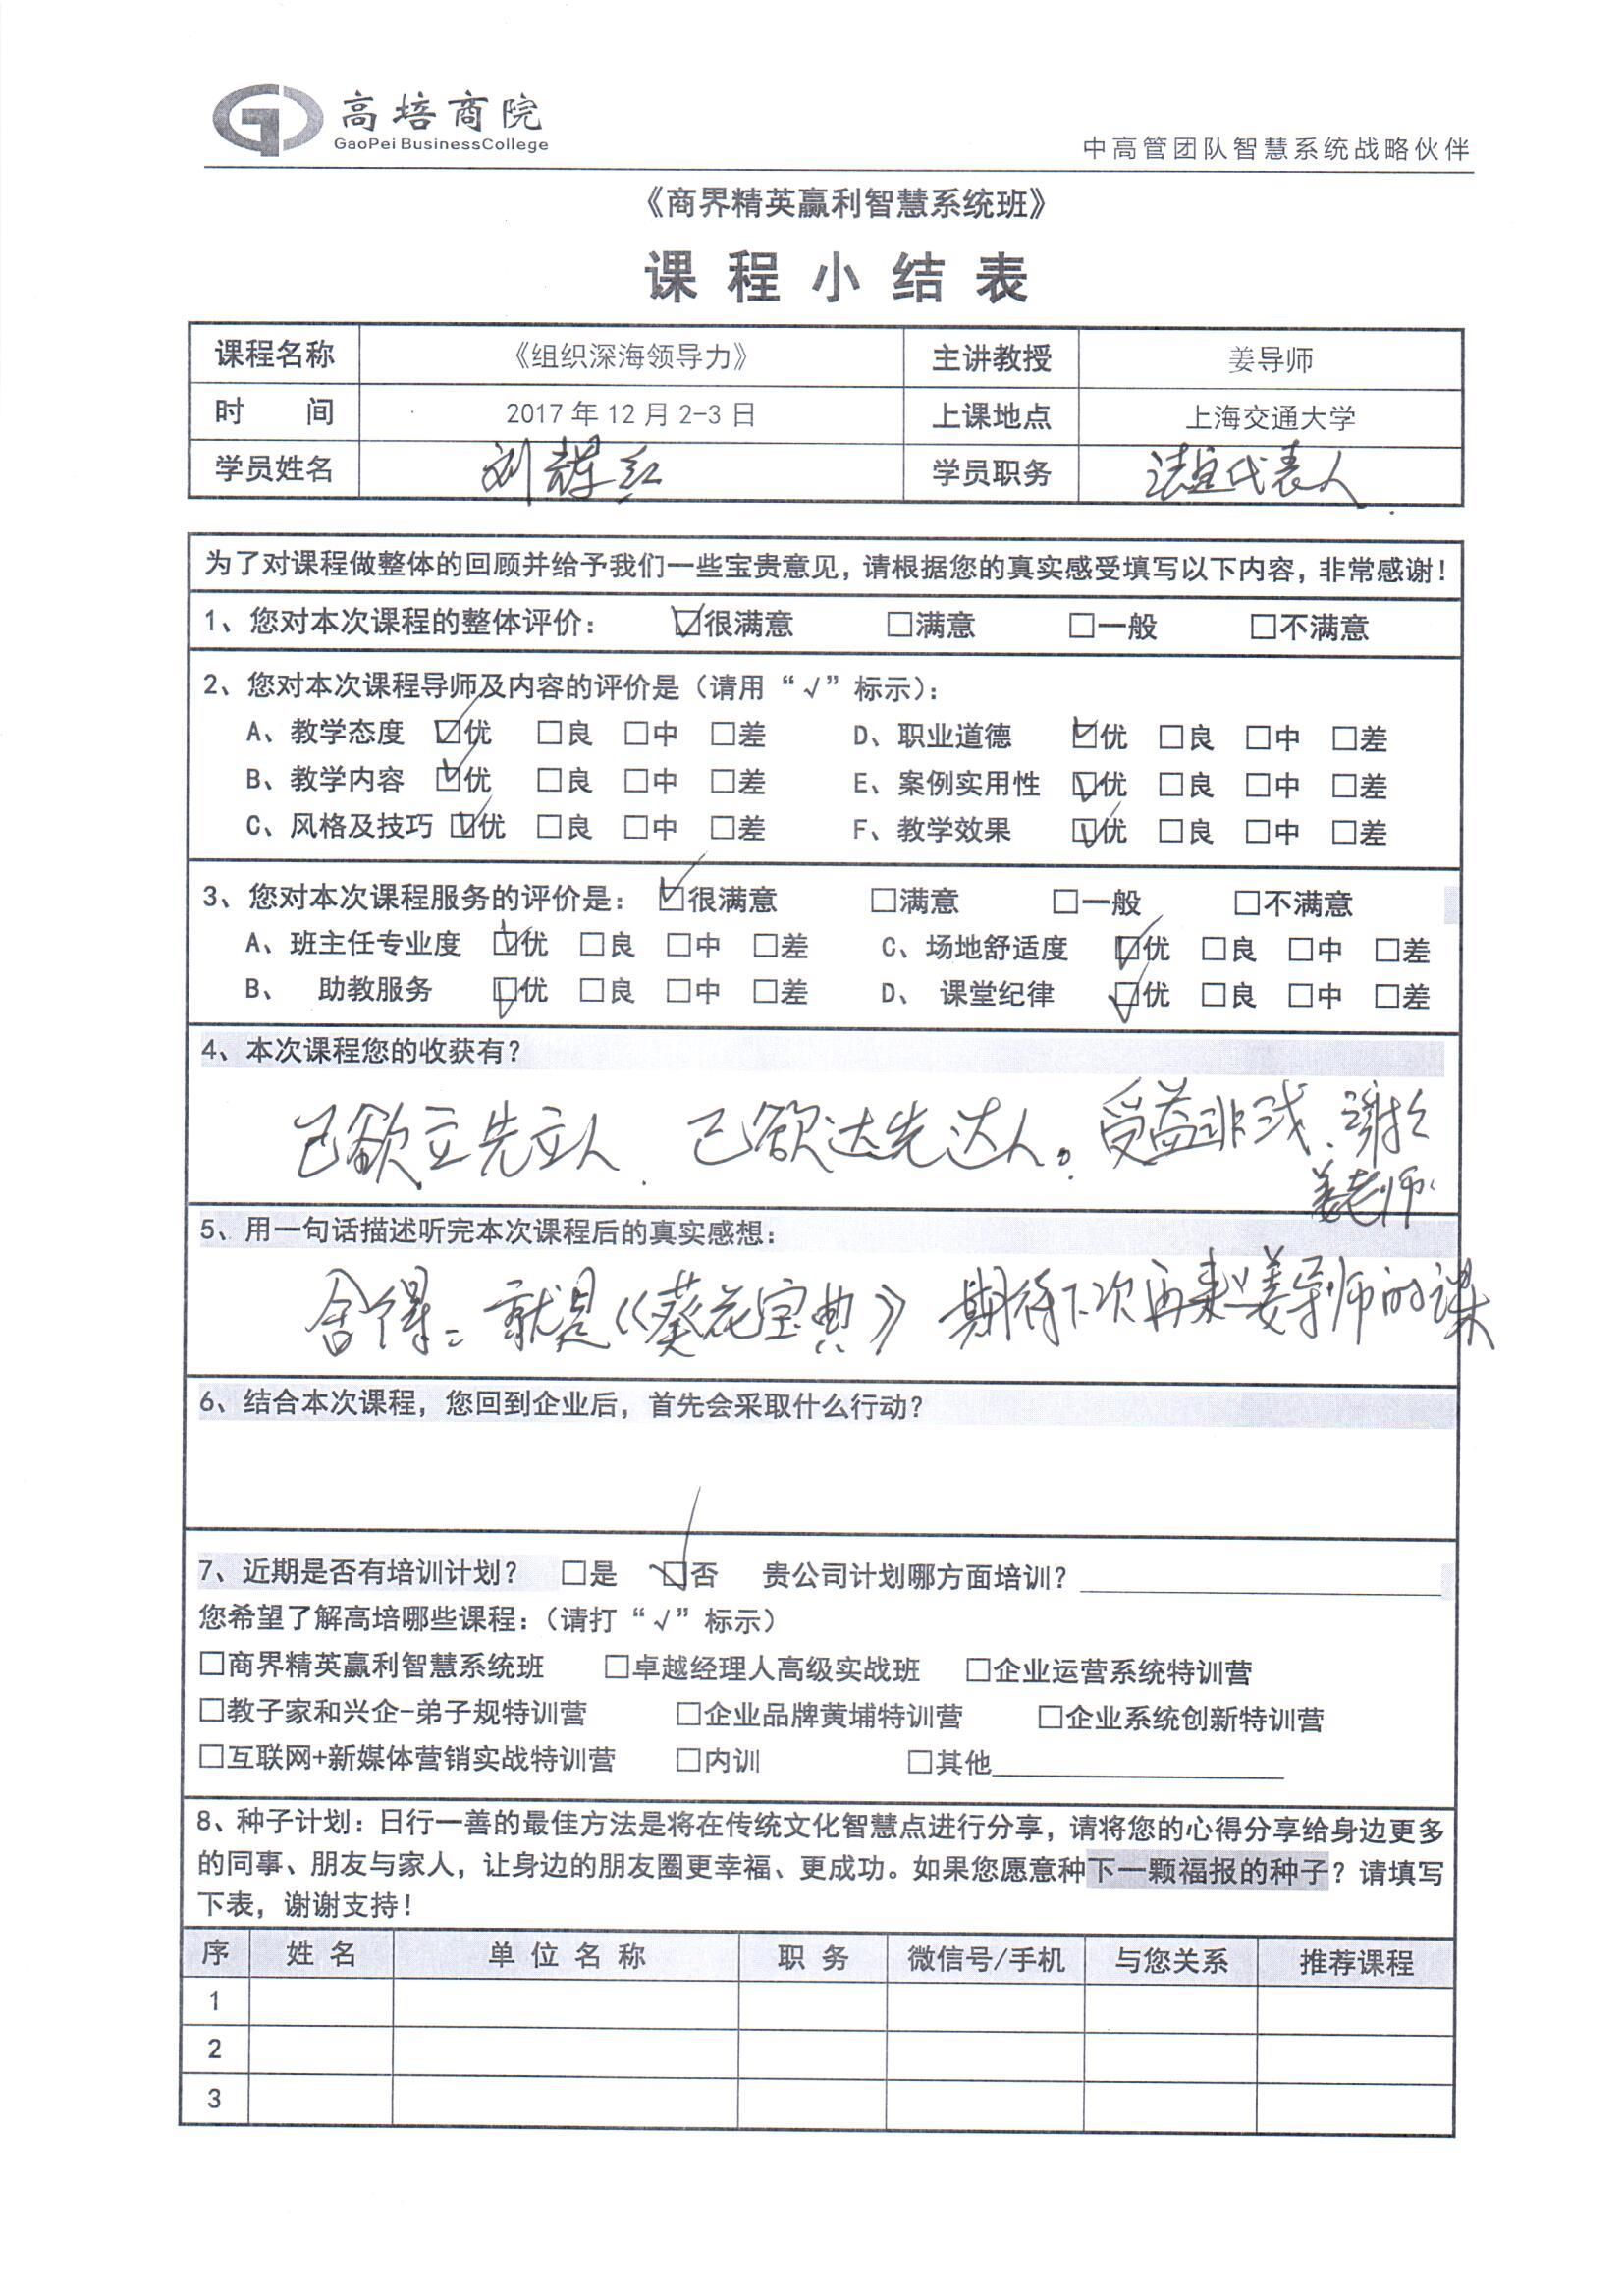 高培商院
GaoPei BusinessCollege
中高管团队智慧系统战略伙伴
《商界精英赢利智慧系统班》
课程小结表
课程名称 《组织深海领导力》 主讲教授 姜导师
时 间 2017年12月2-3日 上课地点 上海交通大学
学员姓名 刘辉红 学员职务 法定代表人
为了对课程做整体的回顾并给予我们一些宝贵意见，请根据您的真实感受填写以下内容，非常感谢！
1、您对本次课程的整体评价： ☑很满意 □满意 □一般 □不满意
2、您对本次课程导师及内容的评价是（请用“√”标示）：
A、教学态度 ☑优 □良 □中 □差 D、职业道德 ☑优 □良 □中 □差
B、教学内容 ☑优 □良 □中 □差 E、案例实用性 ☑优 □良 □中 □差
C、风格及技巧 ☑优 □良 □中 □差 F、教学效果 ☑优 □良 □中 □差
3、您对本次课程服务的评价是： ☑很满意 □满意 □一般 □不满意
A、班主任专业度 ☑优 □良 □中 □差 C、场地舒适度 ☑优 □良 □中 □差
B、 助教服务 ☑优 □良 □中 □差 D、 课堂纪律 ☑优 □良 □中 □差
4、本次课程您的收获有？
己欲立先立人、己欲达先达人。受益非浅、谢谢
姜老师
5、用一句话描述听完本次课程后的真实感想：
舍得＝就是《葵花宝典》 期待下次再来姜导师的课
6、结合本次课程，您回到企业后，首先会采取什么行动？
7、近期是否有培训计划？ □是 ☑否 贵公司计划哪方面培训？
您希望了解高培哪些课程：（请打“√”标示）
□商界精英赢利智慧系统班 □卓越经理人高级实战班 □企业运营系统特训营
□教子家和兴企-弟子规特训营 □企业品牌黄埔特训营 □企业系统创新特训营
□互联网+新媒体营销实战特训营 □内训 □其他
8、种子计划：日行一善的最佳方法是将在传统文化智慧点进行分享，请将您的心得分享给身边更多
的同事、朋友与家人，让身边的朋友圈更幸福、更成功。如果您愿意种下一颗福报的种子？请填写
下表，谢谢支持！
序 姓 名 单 位 名 称 职 务 微信号/手机 与您关系 推荐课程
1
2
3